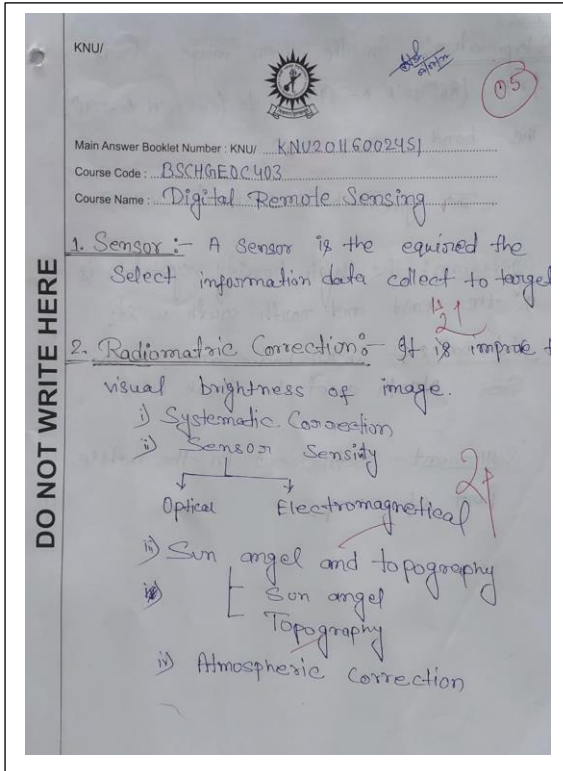 KNU/
05
Main Answer Booklet Number : KNU/ KNU20116002451
Course Code : BSCHGEOC403
Course Name : Digital Remote Sensing
DO NOT WRITE HERE
1. Sensor :- A sensor is the equired the
Select information data collect to target
2. Radiomatric Correction :- It is improe t
visual brightness of image.
i) Systematic Correction
ii) Sensor Sensity
Optical Electromagnetical
iii) Sun angel and topography
Sun angel
Topography
iv) Atmospheric Correction